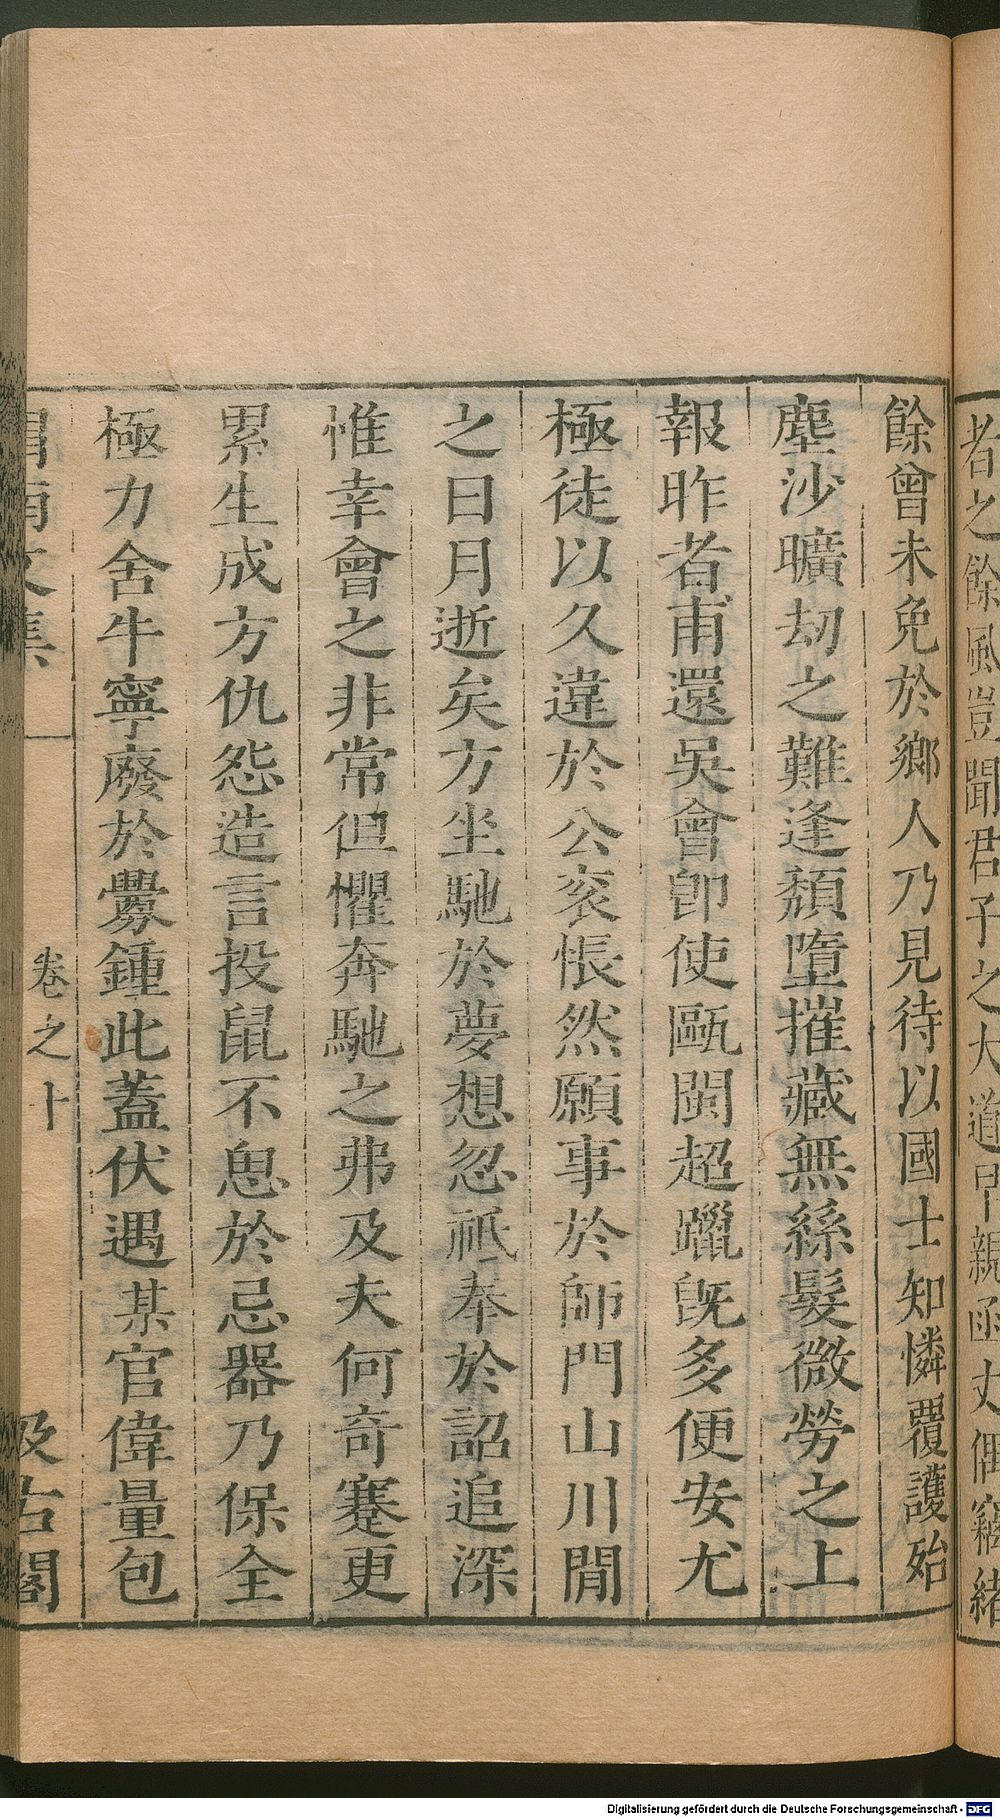 者之餘風豈聞君子之大道早親函丈偶竊緒
餘曾未免於鄉人乃見待以國士知憐覆護殆
塵沙曠劫之難逢頹墮摧藏無絲髮微勞之上
報昨者甫還吳會卽使甌閩超躐旣多便安尤
極徒以久違於公袞悵然願事於師門山川閒
之日月逝矣方坐馳於夢想忽祗奉於詔追深
惟幸會之非常但懼奔馳之弗及夫何奇蹇更
累生成方仇怨造言投鼠不恖於忌器乃保全
極力舍牛寧廢於釁鍾此蓋伏遇某官偉量包
渭南文集
卷之十
汲古閣
Digitalisierung gefördert durch die Deutsche Forschungsgemeinschaft - DFG